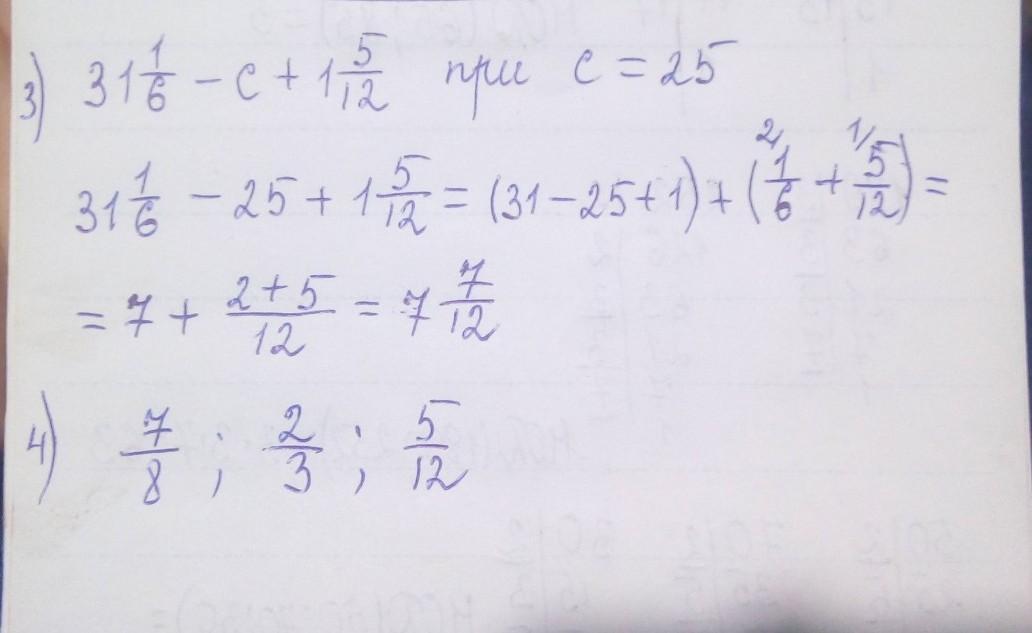 3) 31 1/6 - c + 1 5/12 при c = 25
31 1/6 - 25 + 1 5/12 = (31 - 25 + 1) + (1/6 ²⁄ + 5/12 ¹⁄) =
= 7 + (2+5)/12 = 7 7/12
4) 7/8 ; 2/3 ; 5/12